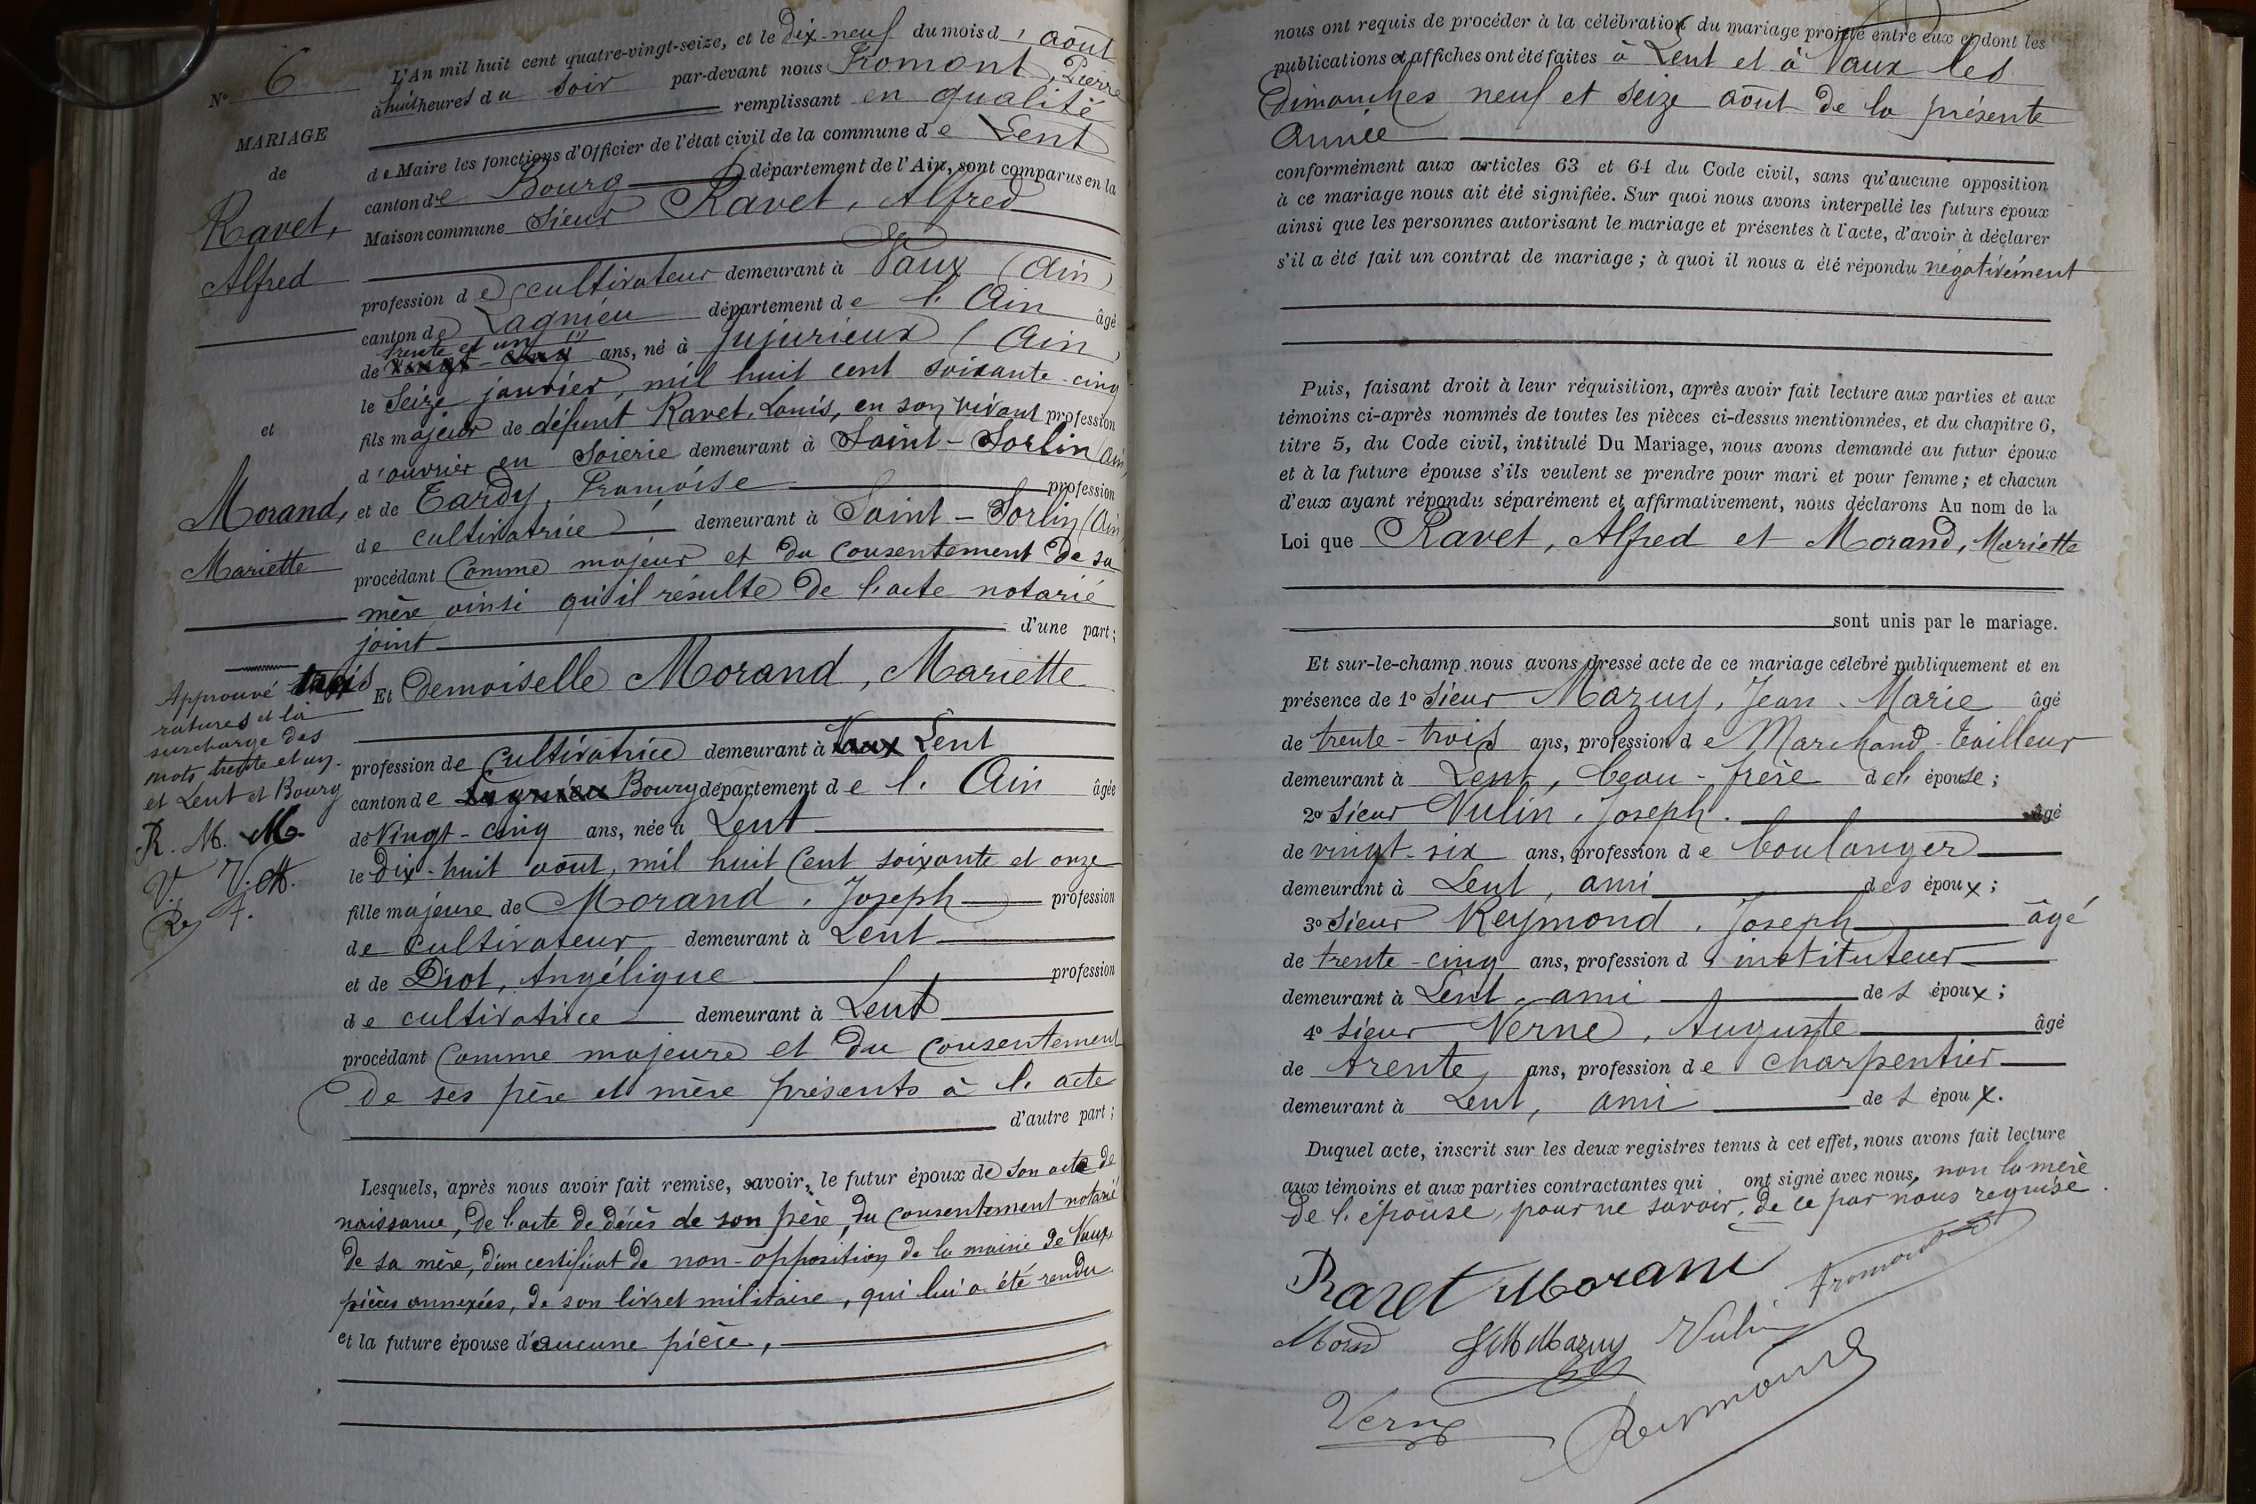 N° 6
MARIAGE
de
Ravet,
Alfred
et
Morand,
Mariette
Approuvé trois
ratures et la
surcharge des
mots trente et un.
et Lent et Bourg
R. M. M.
V. V. A.
Re F.
L'An mil huit cent quatre-vingt-seize, et le dix-neuf du mois d' août
à huit heures du soir par-devant nous Fromont, Pierre
remplissant en qualité
de Maire les fonctions d'Officier de l'état civil de la commune de Lent
canton de Bourg département de l'Ain, sont comparus en la
Maison commune Sieur Ravet, Alfred
profession de cultivateur demeurant à Vaux (Ain)
canton de Lagnieu département de l'Ain âgé
trente et un (1)
de vingt-cinq ans, né à Jujurieux (Ain)
le Seize janvier, mil huit cent soixante-cinq
fils majeur de défunt Ravet, Louis, en son vivant profession
d'ouvrier en soierie demeurant à Saint-Sorlin (Ain)
et de Tardy, Françoise profession
de cultivatrice demeurant à Saint-Sorlin (Ain)
procédant comme majeur et du consentement de sa
mère ainsi qu'il résulte de l'acte notarié
joint d'une part;
Et Demoiselle Morand, Mariette
profession de Cultivatrice demeurant à Vaux Lent
canton de Lagnieu Bourg département de l'Ain âgée
de Vingt-cinq ans, née à Lent
le Dix-huit août, mil huit cent soixante et onze
fille majeure de Morand, Joseph profession
de cultivateur demeurant à Lent
et de Diot, Angélique profession
de cultivatrice demeurant à Lent
procédant comme majeure et du consentement
de ses père et mère présents à l'acte
d'autre part;
Lesquels, après nous avoir fait remise, savoir, le futur époux de son acte de
naissance, de l'acte de décès de son père, du consentement notarié
de sa mère, d'un certificat de non-opposition de la mairie de Vaux,
pièces annexées, de son livret militaire, qui lui a été rendu
et la future épouse d'aucune pièce,
nous ont requis de procéder à la célébration du mariage projeté entre eux et dont les
publications et affiches ont été faites à Lent et à Vaux les
Dimanches neuf et seize août de la présente
année
conformément aux articles 63 et 64 du Code civil, sans qu'aucune opposition
à ce mariage nous ait été signifiée. Sur quoi nous avons interpellé les futurs époux
ainsi que les personnes autorisant le mariage et présentes à l'acte, d'avoir à déclarer
s'il a été fait un contrat de mariage; à quoi il nous a été répondu négativement
Puis, faisant droit à leur réquisition, après avoir fait lecture aux parties et aux
témoins ci-après nommés de toutes les pièces ci-dessus mentionnées, et du chapitre 6,
titre 5, du Code civil, intitulé Du Mariage, nous avons demandé au futur époux
et à la future épouse s'ils veulent se prendre pour mari et pour femme; et chacun
d'eux ayant répondu séparément et affirmativement, nous déclarons Au nom de la
Loi que Ravet, Alfred et Morand, Mariette
sont unis par le mariage.
Et sur-le-champ nous avons dressé acte de ce mariage célébré publiquement et en
présence de 1° Sieur Mazuy, Jean-Marie âgé
de trente-trois ans, profession de Marchand-Tailleur
demeurant à Lent, beau-frère de l'épouse;
2° Sieur Vulin, Joseph. âgé
de vingt-six ans, profession de boulanger
demeurant à Lent, ami des époux;
3° Sieur Reymond, Joseph âgé
de trente-cinq ans, profession d'instituteur
demeurant à Lent, ami des époux;
4° Sieur Verne, Auguste âgé
de trente, ans, profession de charpentier
demeurant à Lent, ami des époux.
Duquel acte, inscrit sur les deux registres tenus à cet effet, nous avons fait lecture
aux témoins et aux parties contractantes qui ont signé avec nous, non la mère
de l'épouse, pour ne savoir, de ce par nous requise.
Ravet Morand Fromont
Morand JM Mazuy Vulin
Verne Reymond